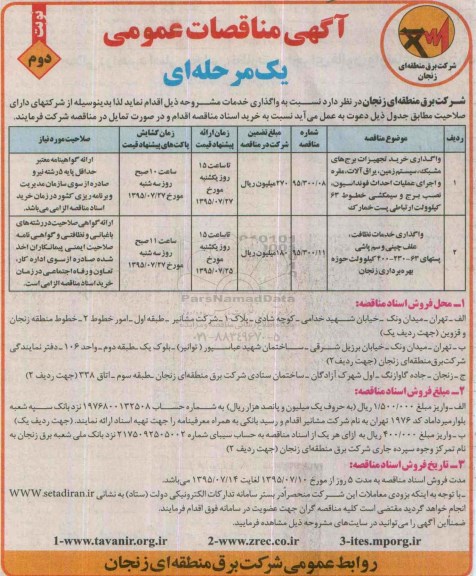 نوبت
دوم
آگهی مناقصات عمومی
یک مرحله‌ای
شرکت برق منطقه‌ای
زنجان
شرکت برق منطقه‌ای زنجان در نظر دارد نسبت به واگذاری خدمات مشروحه ذیل اقدام نماید لذا بدینوسیله از شرکتهای دارای
صلاحیت مطابق جدول ذیل دعوت به عمل می‌آید نسبت به خرید اسناد مناقصه اقدام و در صورت تمایل در مناقصه شرکت فرمایند.
ردیف
موضوع مناقصه
شماره مناقصه
مبلغ تضمین شرکت در مناقصه
زمان ارائه پیشنهاد قیمت
زمان گشایش پاکت‌های پیشنهاد قیمت
صلاحیت مورد نیاز
۱
واگذاری خرید تجهیزات برج‌های
مشبکه، سیستم زمین، یراق آلات، مقره
و اجرای عملیات احداث فونداسیون،
نصب برج و سیمکشی خطوط ۶۳
کیلوولت ارتباطی پست خمارک
۹۵/۳۰۰/۰۸
۲۷۰ میلیون ریال
تا ساعت ۱۵
روز یکشنبه
مورخ
۱۳۹۵/۰۷/۲۷
ساعت ۱۰ صبح
روز سه شنبه
مورخ ۱۳۹۵/۰۷/۲۷
ارائه گواهینامه معتبر
حداقل پایه ۵ رشته نیرو
صادره از سوی سازمان مدیریت
و برنامه ریزی کشور در زمان خرید
اسناد مناقصه الزامی می‌باشد.
۲
واگذاری خدمات نظافت،
علف چینی و سم پاشی
پستهای ۶۳-۲۳۰-۴۰۰ کیلوولت حوزه
بهره برداری زنجان
۹۵/۳۰۰/۱۱
۱۸۰ میلیون ریال
تا ساعت ۱۵
روز یکشنبه
مورخ
۱۳۹۵/۰۷/۲۵
ساعت ۱۱ صبح
روز سه شنبه
مورخ ۱۳۹۵/۰۷/۲۷
ارائه گواهی صلاحیت در رشته‌های
باغبانی و نظافتی و گواهی نامه
صلاحیت ایمنی پیمانکاران اخذ
شده صادره از سوی اداره کار،
تعاون و رفاه اجتماعی در زمان
خرید اسناد مناقصه الزامی است.
۱- محل فروش اسناد مناقصه:
الف- تهران- میدان ونک- خیابان شهید خدامی- کوچه شادی- پلاک ۱- شرکت مشانیر- طبقه اول- امور خطوط ۲- خطوط منطقه زنجان
و قزوین (جهت ردیف یک)
ب- تهران- میدان ونک- خیابان برزیل شرقی- ساختمان شهید عباسپور (توانیر)- بلوک یک- طبقه دوم- واحد ۱۰۶- دفتر نمایندگی
شرکت برق منطقه‌ای زنجان (جهت ردیف ۲)
ج- زنجان- جاده گاوازنگ- اول شهرک آزادگان- ساختمان ستادی شرکت برق منطقه‌ای زنجان- طبقه سوم- اتاق ۳۳۸ (جهت ردیف ۲)
۲- مبلغ فروش اسناد مناقصه:
الف- واریز مبلغ ۱/۵۰۰/۰۰۰ ریال (به حروف یک میلیون و پانصد هزار ریال) به شماره حساب ۱۹۷۶۸۰۰۱۳۲۵۰۸ نزد بانک سپه شعبه
بلوار میرداماد کد ۱۹۷۶ تهران به نام شرکت مشانیر اقدام و رسید بانکی به همراه معرفینامه را جهت تهیه اسناد ارائه نمایند. (جهت ردیف یک)
ب- واریز مبلغ ۴۰۰/۰۰۰ ریال به ازای هر یک از اسناد مناقصه به حساب سیبای شماره ۲۱۷۵۰۹۲۵۰۵۰۰۲ نزد بانک ملی شعبه برق زنجان به
نام تمرکز وجوه سپرده جاری شرکت برق منطقه‌ای زنجان (جهت ردیف ۲)
۳- تاریخ فروش اسناد مناقصه:
مدت فروش اسناد مناقصه به مدت ۵ روز از مورخ ۱۳۹۵/۰۷/۱۰ لغایت ۱۳۹۵/۰۷/۱۴ می‌باشد.
- با توجه به اینکه بزودی معاملات این شرکت منحصراً در بستر سامانه تدارکات الکترونیکی دولت (ستاد) به نشانی WWW.setadiran.ir
انجام خواهد گردید مقتضی است کلیه مناقصه گران جهت عضویت در سامانه فوق اقدام فرمایند.
ضمناً این آگهی را می‌توانید در سایت‌های مشروحه ذیل مشاهده فرمایید.
1-www.tavanir.org.ir 2-www.zrec.co.ir 3-ites.mporg.ir
روابط عمومی شرکت برق منطقه‌ای زنجان